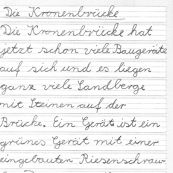 Die Kronenbrücke
Die Kronenbrücke hat
jetzt schon viele Baugeräte
auf sich und es liegen
ganz viele Sandberge
mit Steinen auf der
Brücke. Ein Gerät ist ein
grünes Gerät mit einer
eingebauten Riesenschrau-